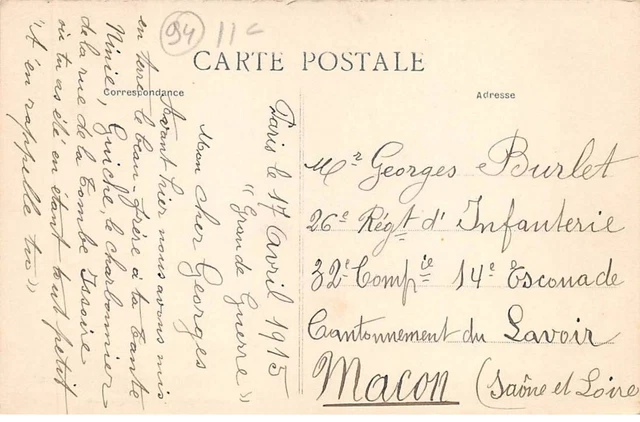 94
11
CARTE POSTALE
Correspondance
Adresse
Paris le 17 Avril 1915
"Grande Guerre"
Mon cher Georges
Avant hier nous avons mis
en terre le beau-frère à ta tante
Ninie, Guiche, le charbonnier
de la rue de la Tombe Issoire
où tu as été en étant tout petit
t'en rappelle tu
Mr Georges Burlet
26e Régt d'Infanterie
32e Compie 14e Escouade
Cantonnement du Lavoir
Macon (Saône et Loire